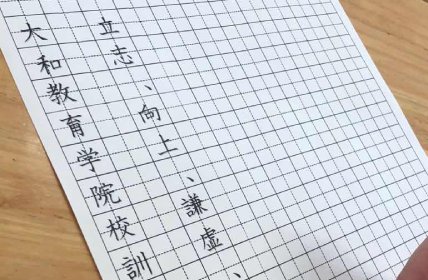 大和教育学院校訓
立志、向上、謙虚、